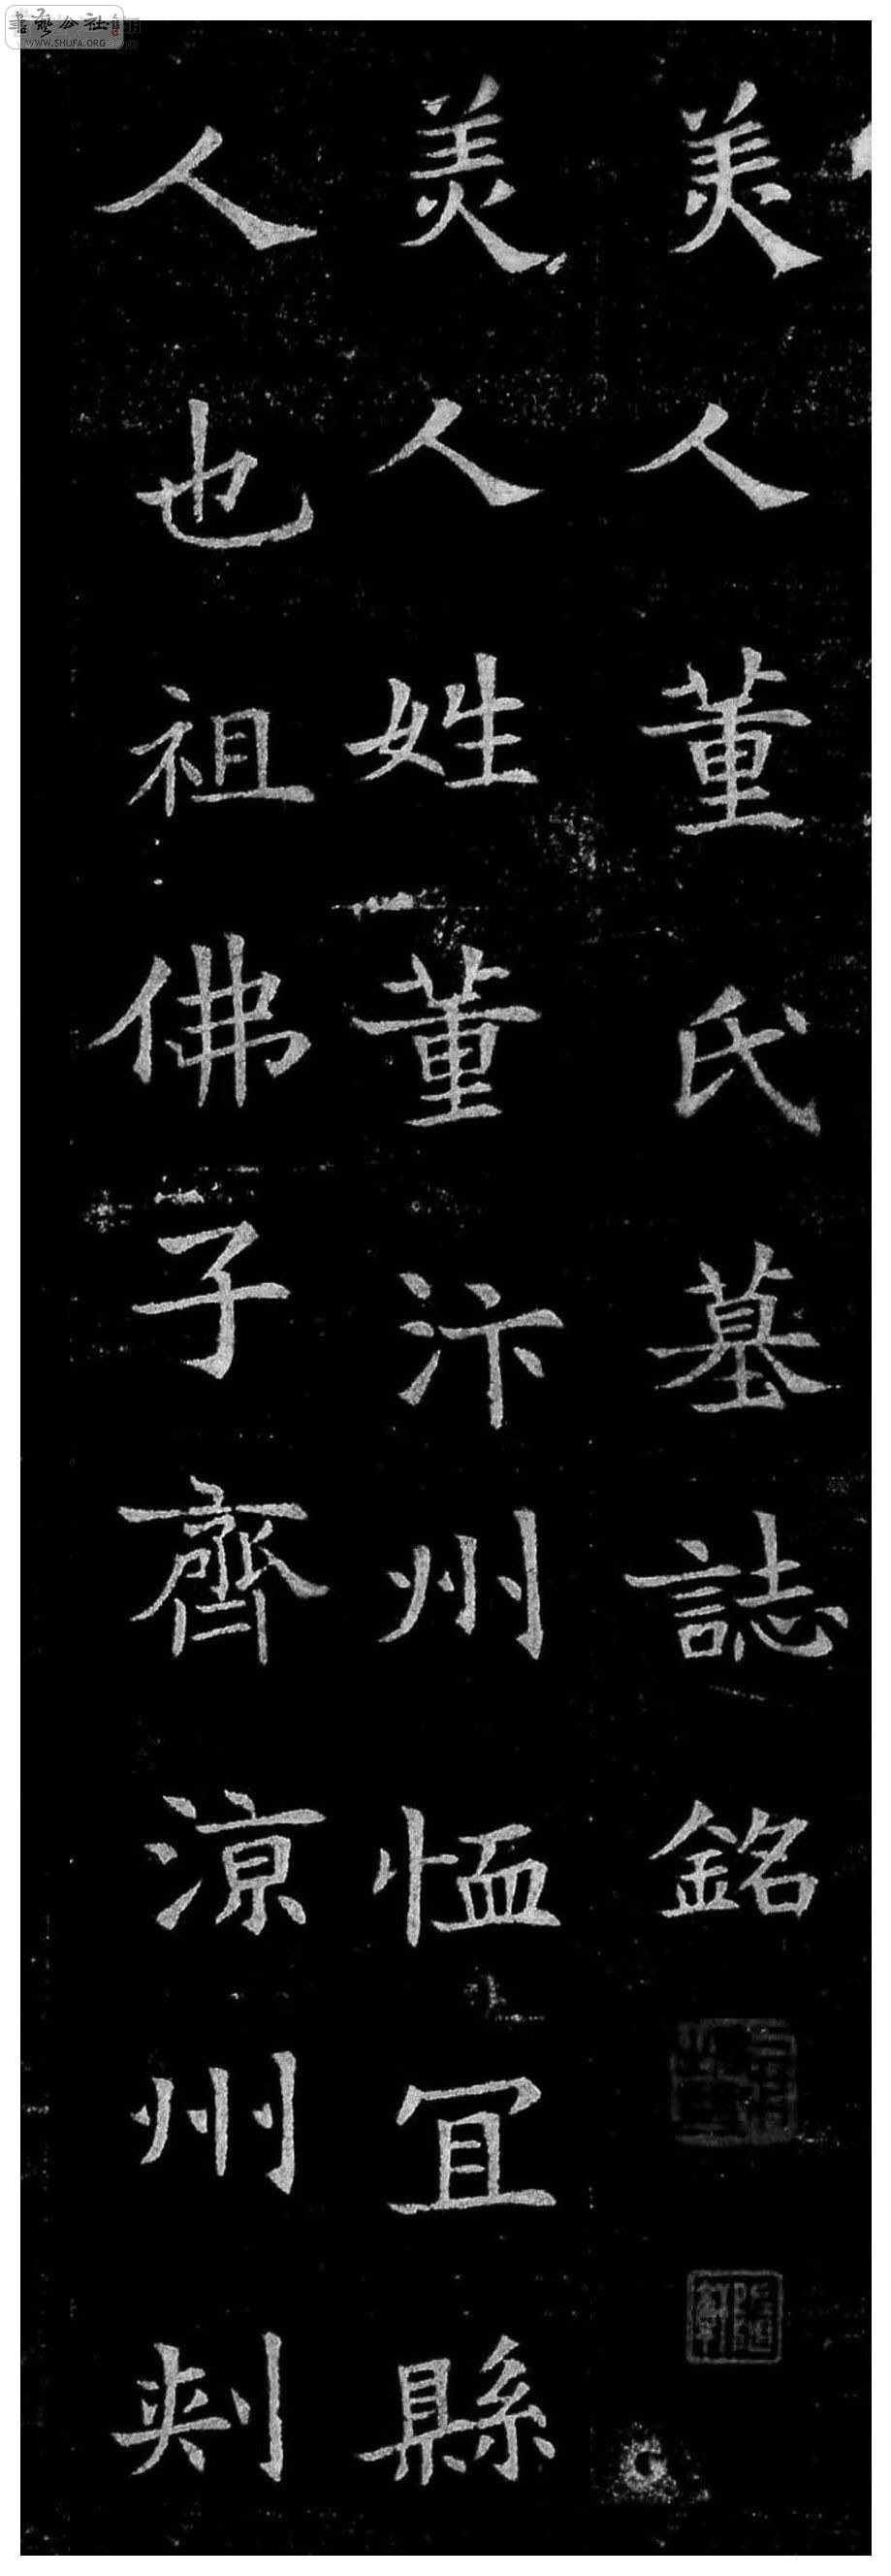 美人董氏墓誌銘
美人姓董汴州恤冝縣
人也祖佛子齊涼州刺
書藝公社
WWW.SHUFA.ORG